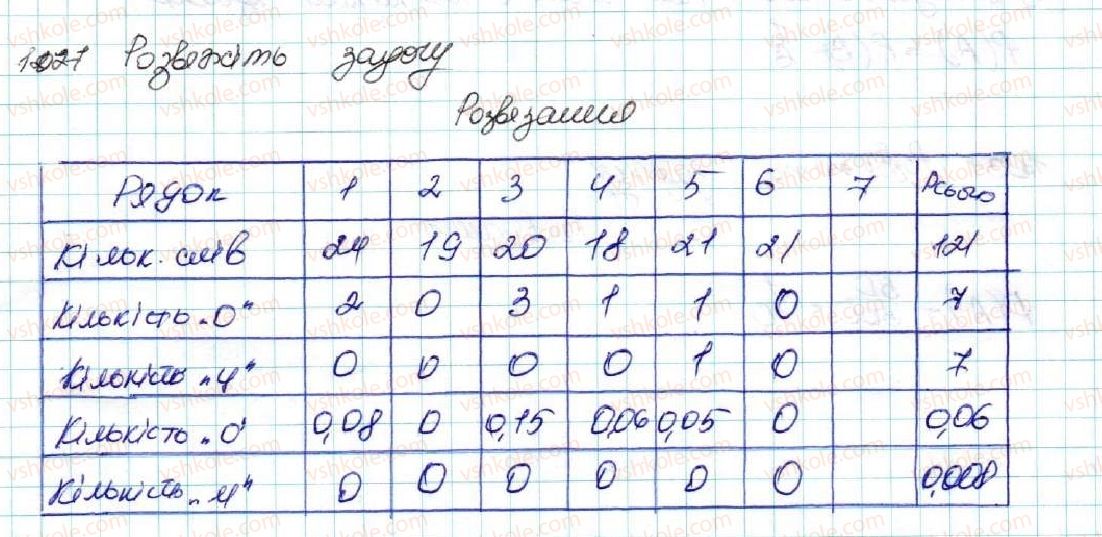 1027 Розвежіть задочу
Розвязання
Рядок 1 2 3 4 5 6 7 Всього
Кільк. слів 24 19 20 18 21 21 121
Кількість „О" 2 0 3 1 1 0 7
Кількість „Ч" 0 0 0 0 1 0 7
Кількість „О" 0,08 0 0,15 0,06 0,05 0 0,06
Кількість „Ч" 0 0 0 0 0 0 0,008